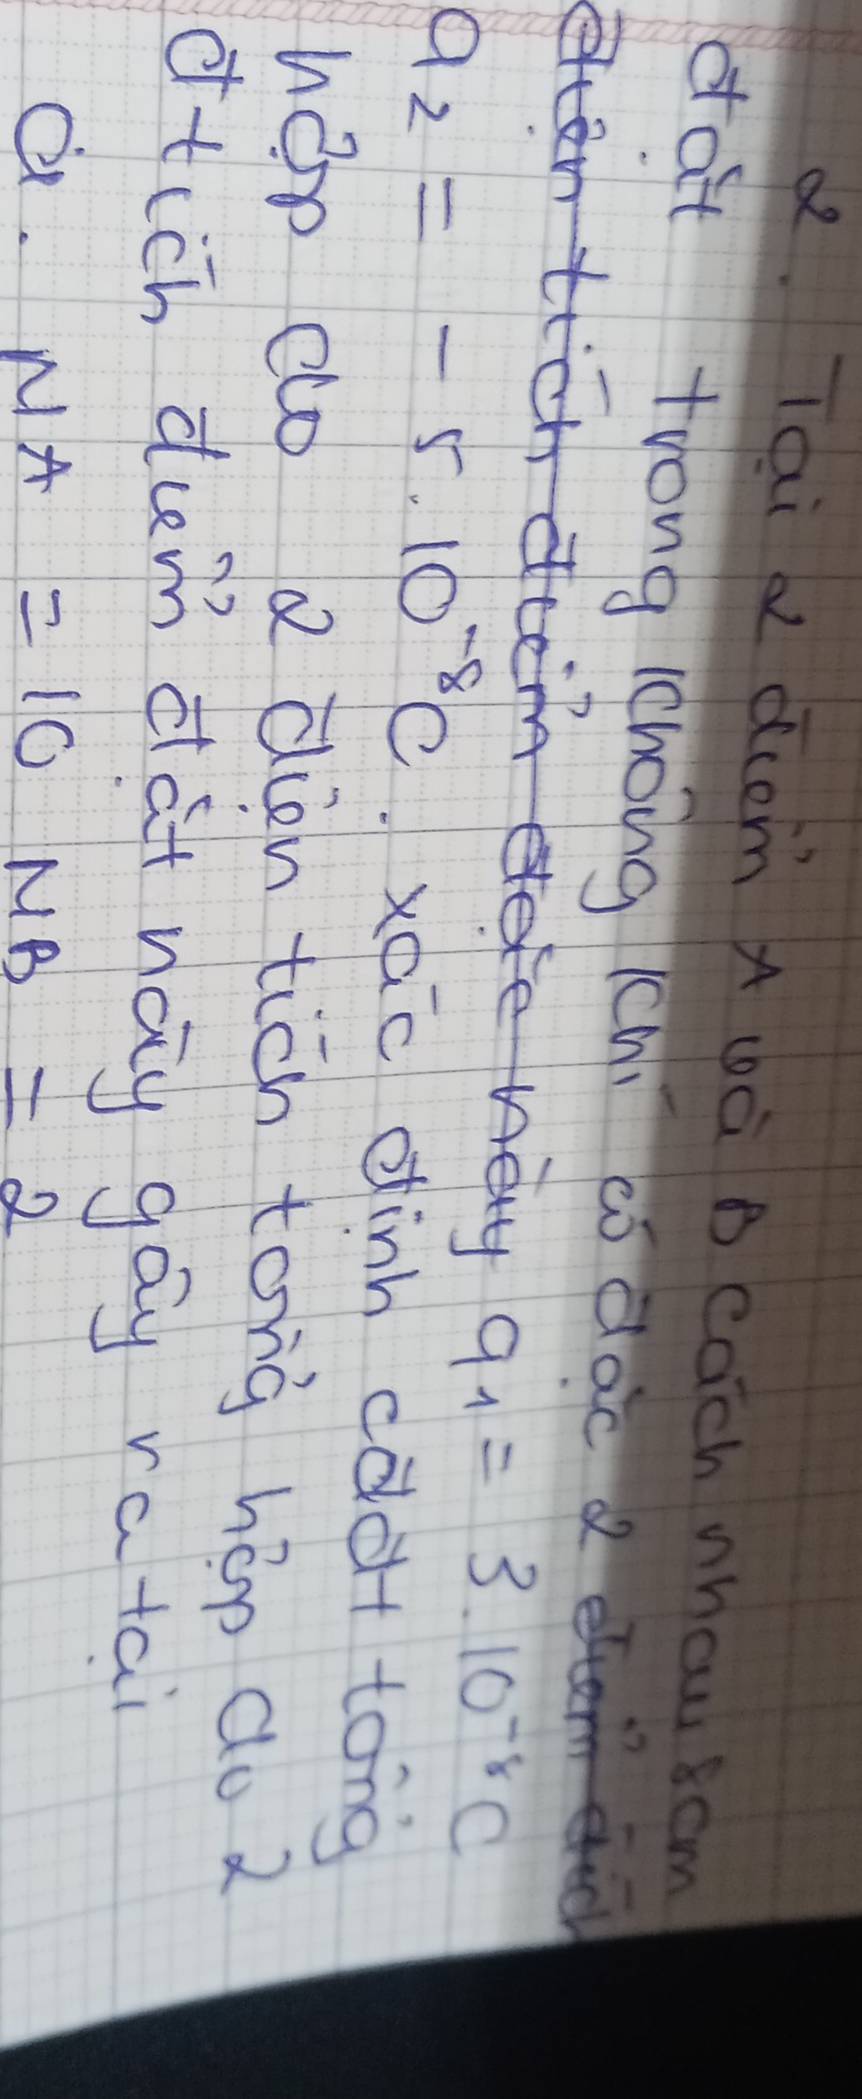 2. Tại 2 điểm A và B cách nhau 8cm
đặt trong không khí có đặc 2 điểm
điện tích điểm đặc này q₁ = 3.10⁻⁸C
q₂ = -5.10⁻⁸C. xác định cđđt tổng
hợp do 2 điện tích tổng hợp do 2
đtích điểm đặt nãy gây ra tại
a. NA = 10 NB = 2